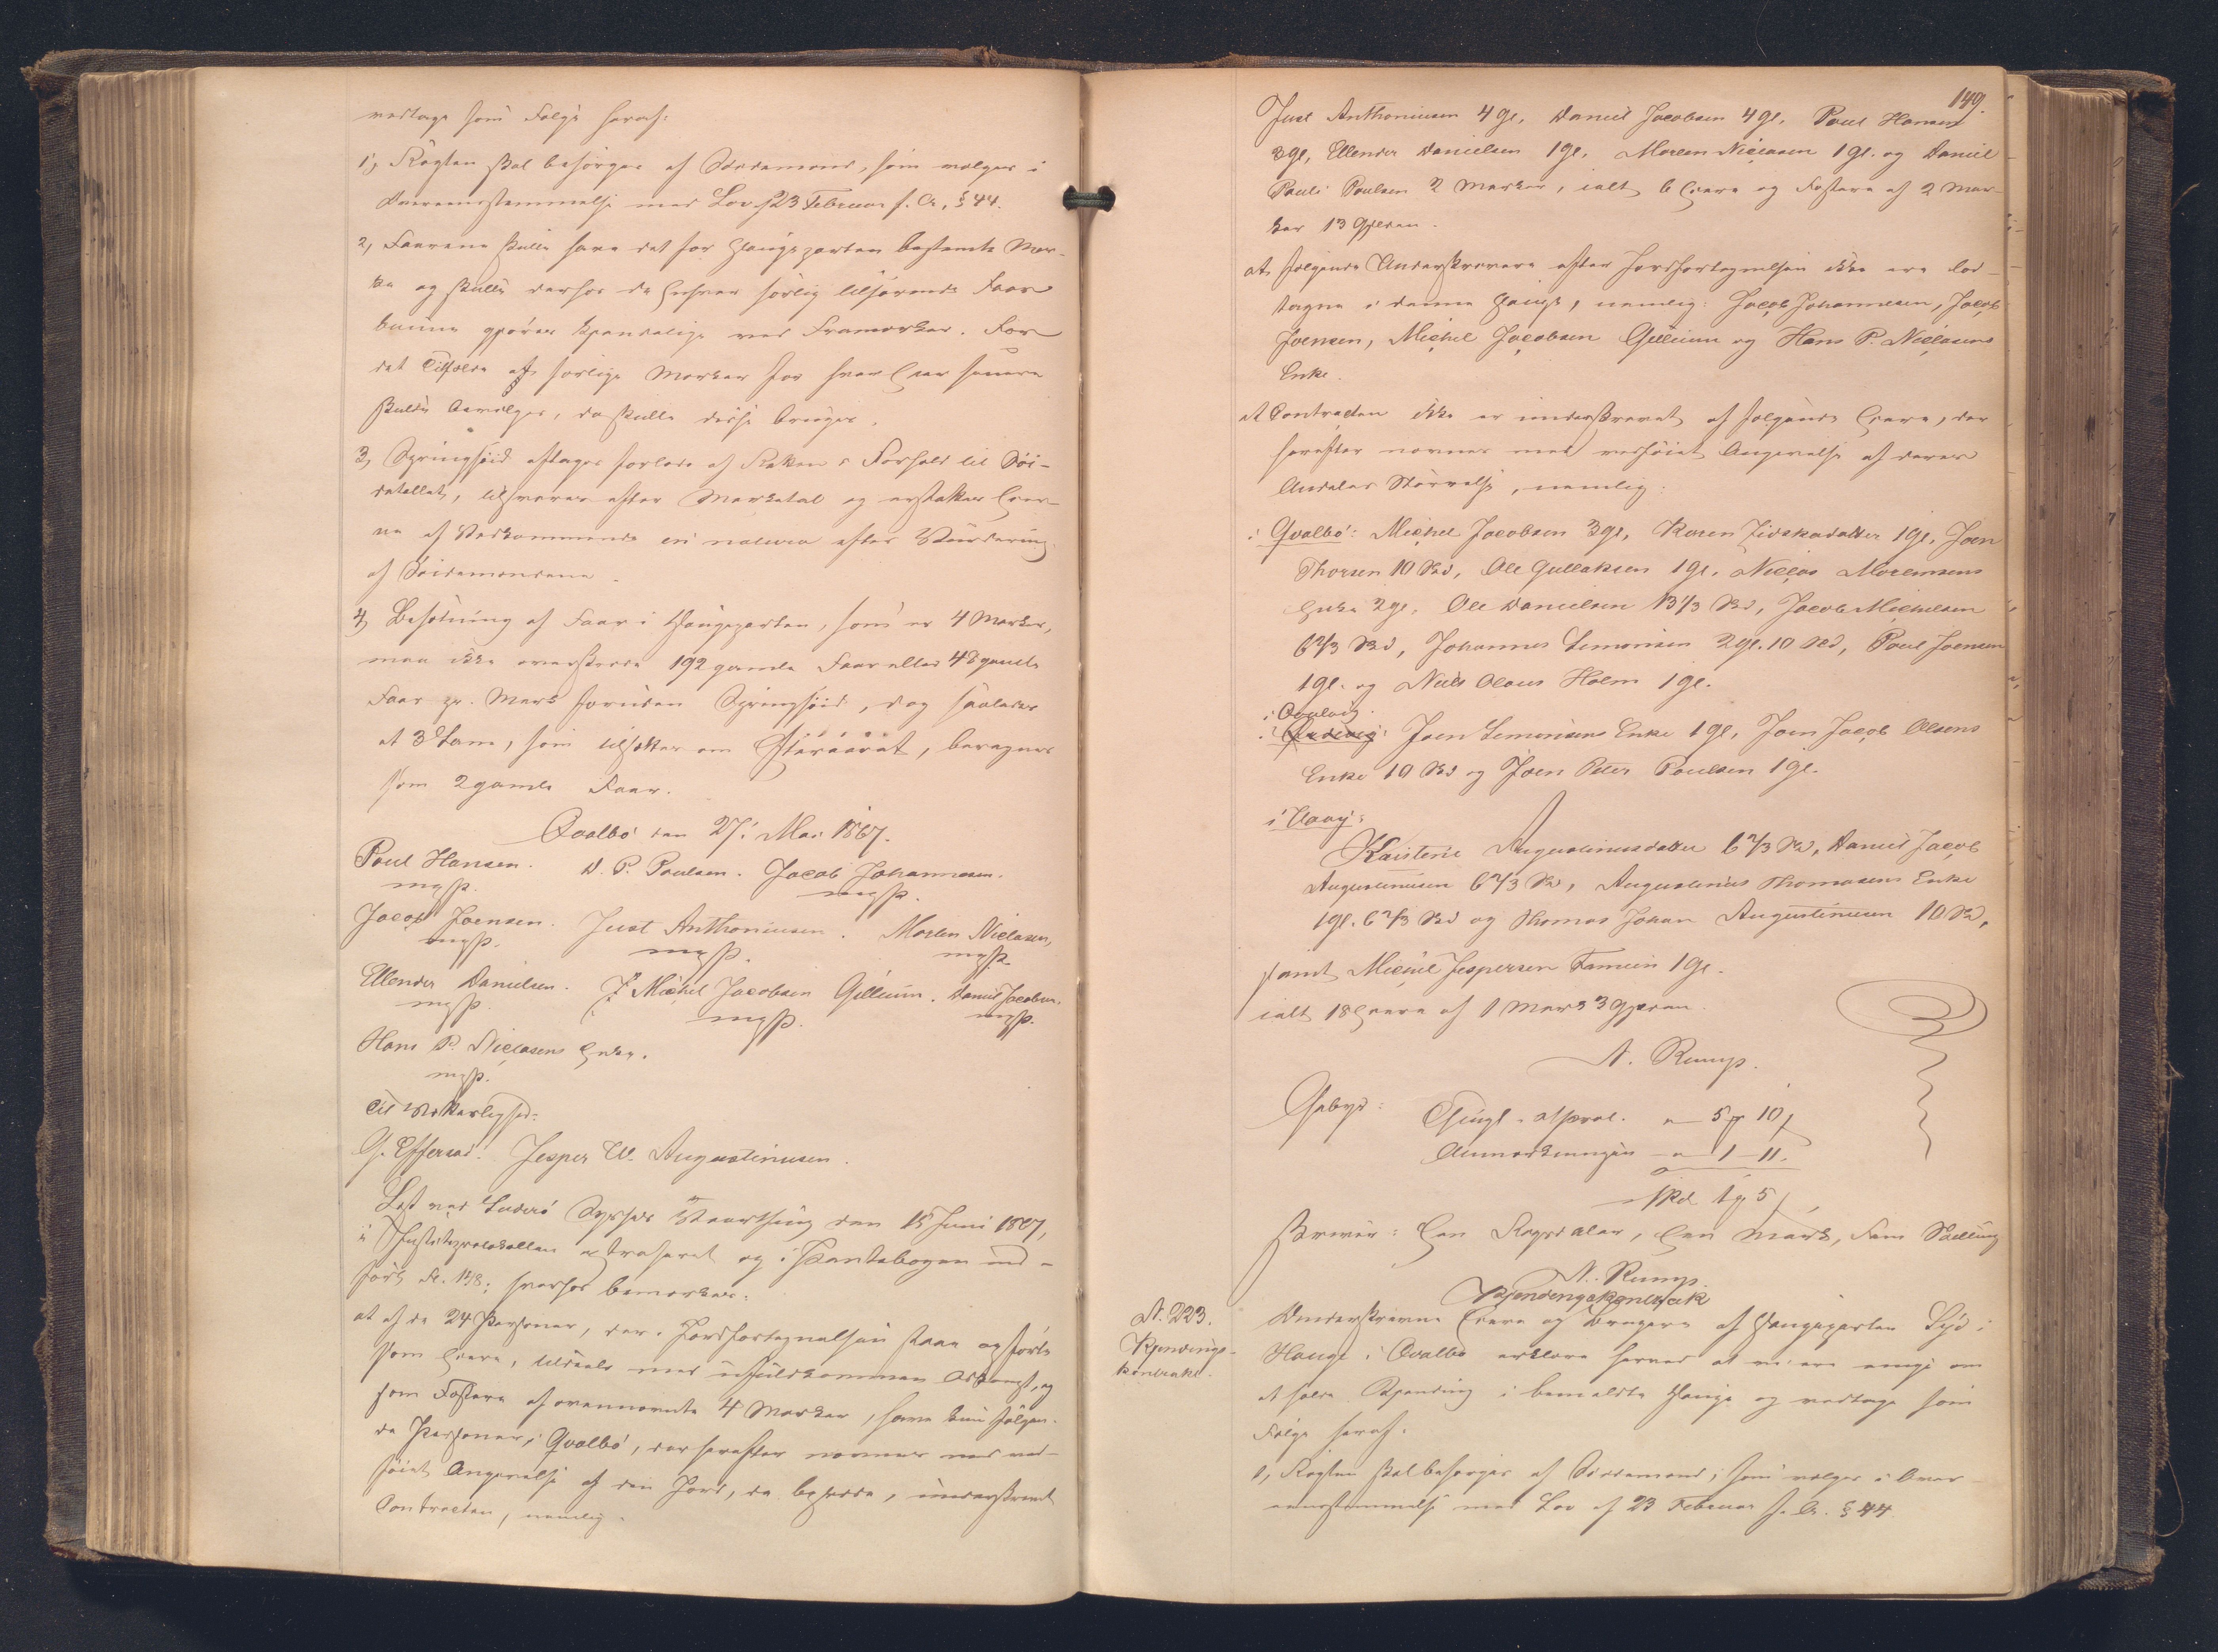 vedtage som Følge heraf:
1, Røgten skal besørges af Sædemænd, som vælges i
Overeensstemmelse med Lov 23 Februar f. A., § 44.
2, Faarene skulle have det for Haugeparten bestemte Mær-
ke og skulle derfor de Enhver særlig tilhørende Faar
kunne gjøres kjendelige ved Framærker. For
det Tilfælde at særlige Mærker for hver Eier senere
skulle bevilges, da skulle disse bruges.
3, Springhøid aftages forlods af Røkten i Forhold til Søi-
detallet, tilsvares efter Marketal og erstattes Eier-
ne af Vedkommende in natura efter Vurdering
af Søidemændene.
4, Besætning af Faar i Haugeparten, som er 4 Marker,
maa ikke overskride 192 gamle Faar eller 48 gamle
Faar pr. Mark foruden Springhøid, dog saaledes
at 3 Lam, som tilsættes om, beregnes
som 2 gamle Faar.
Qvalbø den 27. Mai 1867.
Poul Hansen. D. P. Poulsen. Jacob Johannesen.
mfp. mfp.
Jacob Joensen. Just Anthoniusen. Morten Niclasen,
mfp. mfp. mfp.
Ellender Danielsen. J. Michel Jacobsen Gillium. Daniel Jacobsen.
mfp. mfp. mfp.
Hans P. Niclasens Enke.
mfp.
Til Vitterlighed:
G. Effersøe. Jesper W. Augustinusen.
Læst ved Suderø Syssels Vaarthing den 15 Juni 1867,
i Justitsprotokollen extraheret og i Pantebogen ind-
ført Fol. 148; hvorhos bemærkes:
at af de 24 Personer, der i Jordfortegnelsen staae opførte
som Eiere, tildeels med ufuldkommen Adkomst, og
som Fæstere af ovennævnte 4 Marker, have kun følgen-
de Personer i Qvalbø, der herefter nævnes med ved-
føiet Angivelse af den Jord, de besidde, underskrevet
Contracten, nemlig:
149.
Just Anthoniusen 4 gl, Daniel Jacobsen 4 gl. Poul Hansen
3 gl, Ellender Danielsen 1 gl. Morten Niclasen 1 gl. og Daniel
Pauli Poulsen 2 Marker, ialt 6 Eiere og Fæstere af 2 Mar-
ker 13 Gylden.
at følgende Underskrivere efter Jordfortegnelsen ikke ere lod-
tagne i denne Hauge, nemlig: Jacob Johannesen, Jacob
Joensen, Michel Jacobsen Gillium og Hans P. Niclasens
Enke.
at Contracten ikke er underskrevet af følgende Eiere, der
herefter nævnes med vedføiet Angivelse af deres
Andeles Størrelse, nemlig:
i Qvalbø: Michel Jacobsen 3 gl, Karen Zidskadatter 1 gl, Joen
Thorsen 10 Sk, Ole Gullaksen 1 gl. Niclas Mortensens
Enke 2 gl, Ole Danielsen 13 1/3 Sk, Jacob Michelsen
6 2/3 Sk, Johannes Simonsen 2 gl. 10 Sk, Poul Joensen
1 gl. og Niels Claus Holm 1 gl.
i
Joen Simonsens Enke 1 gl, Joen Jacob Olsens
Enke 10 Sk og Joen Peter Poulsen 1 gl.
i Vaag:
Kristene Augustinusdatter 6 2/3 Sk, Daniel Jacob
Augustinusen 6 2/3 Sk, Augustinus Thomasens Enke
1 gl. 6 2/3 Sk og Thomas Johan Augustinusen 10 Sk,
samt Michel Jespersen Famien 1 gl.
ialt 18 Eiere af 1 Mark 3 Gylden.
N. Rump.
Gebyr: Thingl. - 5 # 10 ß
Anmærkningen - 1 - 11.
1 Rd 1 # 5 ß,
skriver: Een Rigsdaler, Een Mark, Fem Skilling
N. Rump.
Kjendingskontrakt
N. 223.
Kjendings-
kontrakt.
Underskrevne Eiere og Brugere af Haugeparten Syd i
Hauge i Qvalbø erklære herved at vi ere enige om
at holde Kjending i bemeldte Hauge og vedtage som
Følge heraf:
1, Røgten skal besørges af Sædemænd, som vælges i Over-
eensstemmelse med Lov af 23 Februar f. A. § 44.